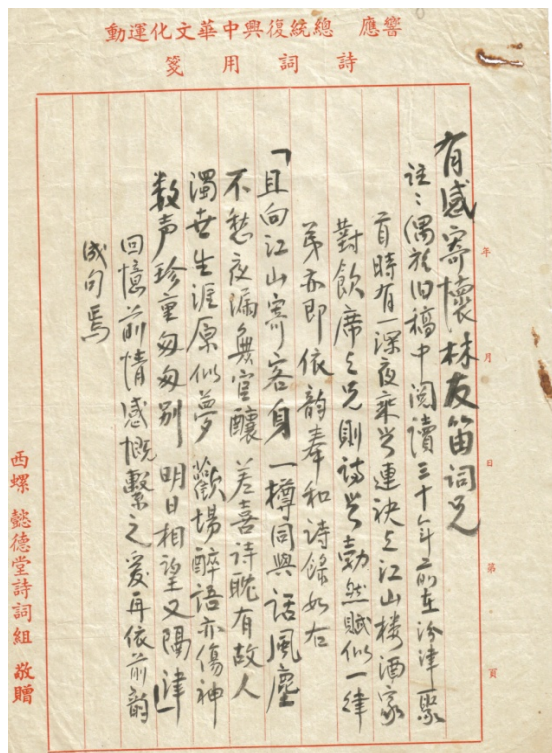 響應 總統復興中華文化運動
詩詞用箋
有感寄懷林友笛詞兄
註:偶於旧稿中閱讀三十年前在汾津一聚
首時有一深夜乘兴連袂上江山楼酒家
對飲席上兄則詩兴勃然賦似一律
弟亦即依韵奉和詩錄如右
「且向江山寄客身 一樽同與話風塵
不愁夜漏無官釀 差喜詩耽有故人
濁世生涯原似夢 歡場醉語亦傷神
数声珍重匆匆別 明日相望又隔津」
回憶前情感慨繫之爰再依前韵
成句焉
年 月 日 第 頁
西螺 懿德堂詩詞組 敬贈